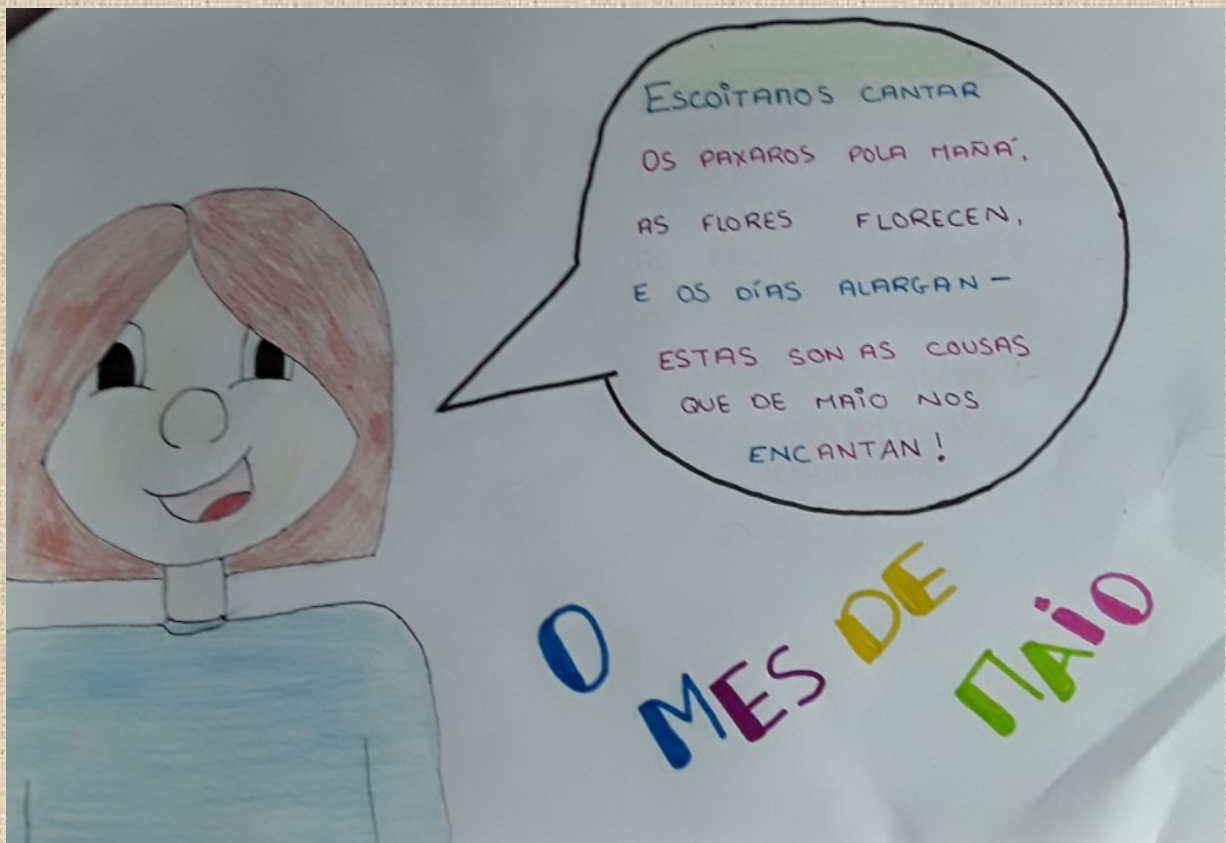 ESCOITAMOS CANTAR
OS PAXAROS POLA MAÑÁ,
AS FLORES FLORECEN,
E OS DÍAS ALARGAN -
ESTAS SON AS COUSAS
QUE DE MAIO NOS
ENCANTAN!
O MES DE MAIO